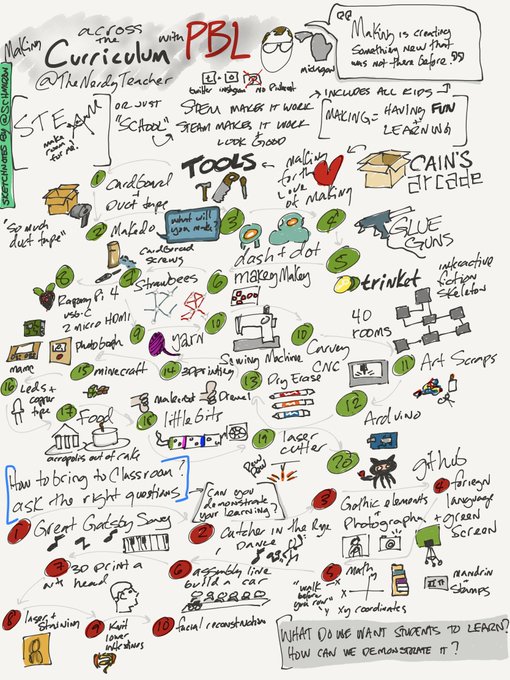 Making across the Curriculum with PBL
@TheNerdyTeacher
twitter instagram no Pinterest
michigan
"Making is creating something new that was not there before."
SKETCHNOTES BY @SCHMURDOW
STEAM
make room for me!
OR JUST "SCHOOL"
STEM MAKES IT WORK
STEAM MAKES IT WORK + LOOK GOOD
INCLUDES ALL KIDS
MAKING = HAVING FUN + LEARNING
TOOLS
making for the love of making
CAIN'S arcade
1 Cardboard + Duct tape
"So much duct tape"
2 Makedo
cardboard screws
what will you make?
3 dash + dot
4 GLUE GUNS
5 trinket
interactive fiction skeleton
40 rooms
6 makeyMakey
7 Strawbees
8 Raspberry Pi 4
usb-c
2 micro HDMI
mame
photobooth
9 yarn
10 Sewing Machine
10 Carvey CNC
11 Art Scraps
12 Arduino
13 Dry Erase
14 3D printing
makerbot
Dremel
15 minecraft
16 Leds + copper tape
17 Food
acropolis out of cake
18 littlebits
19 laser cutter
Pew Pew
20 github
How to bring to Classroom?
ask the right questions
Can you demonstrate your learning?
1 Great Gatsby Songs
2 Catcher in the Rye Dance
3 Gothic elements Photography
4 foreign language + green Screen
mandrin Stamps
5 Math
"walk before you run"
x
y
xy coordinates
6 assembly line build a car
7 3D print a art head
8 laser + staining
9 Knit lower intestines
10 facial reconstruction
WHAT DO WE WANT STUDENTS TO LEARN?
HOW CAN WE DEMONSTRATE IT?